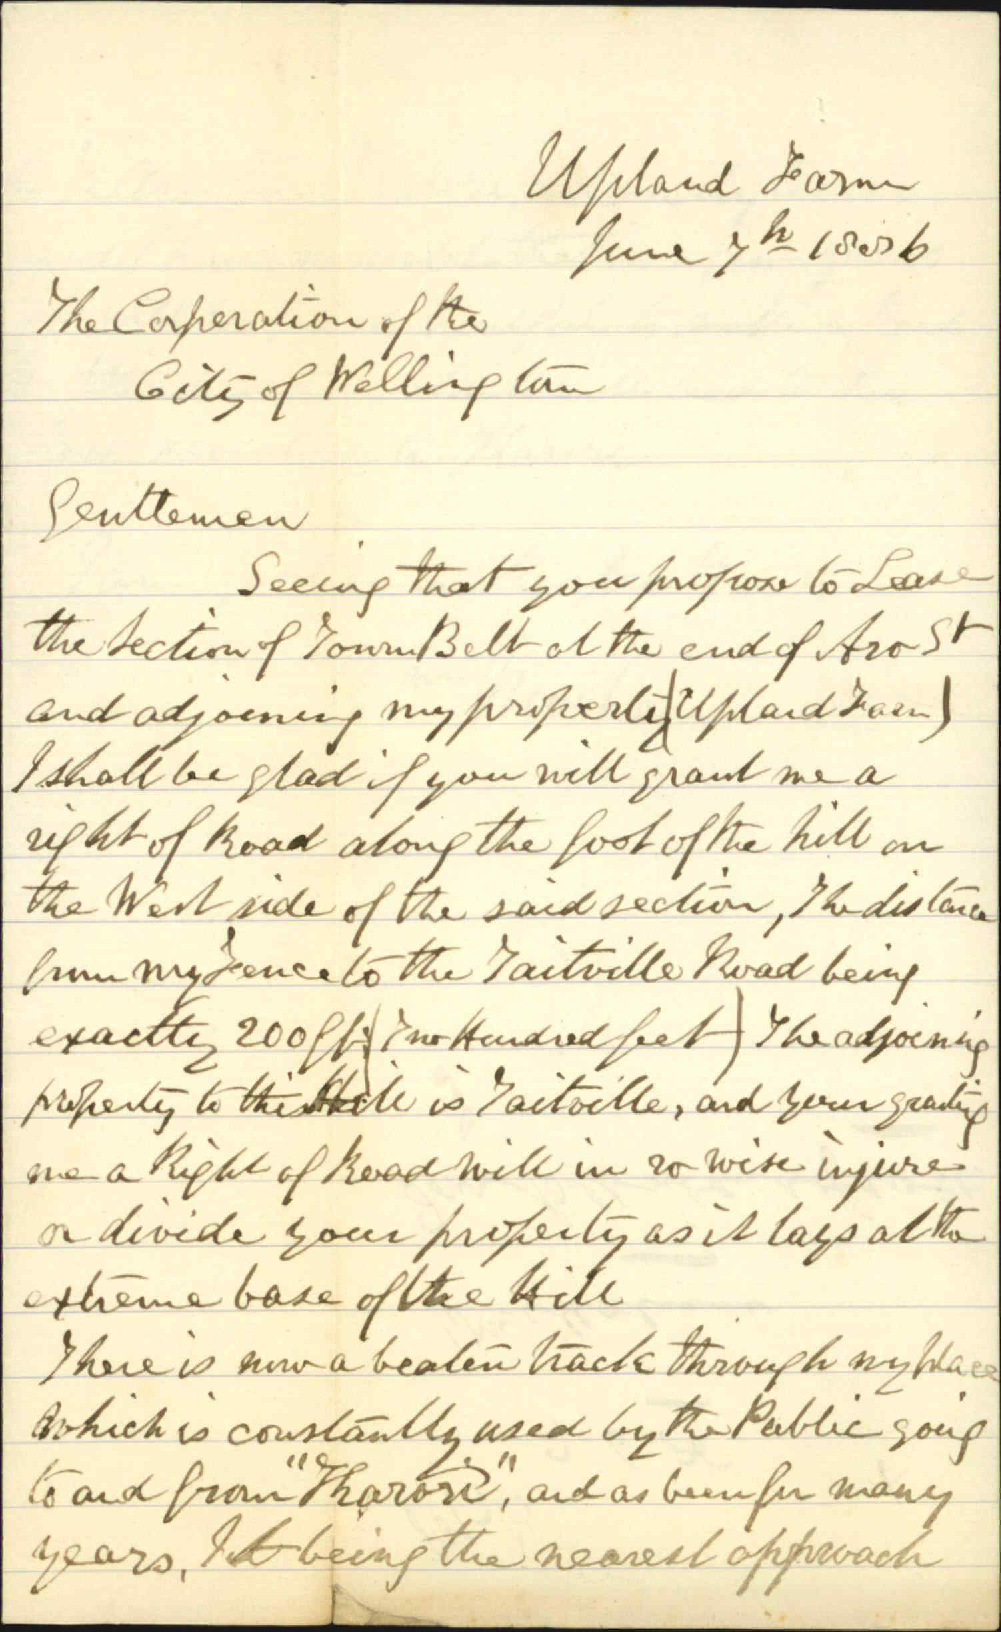 Upland Farm
June 7th 1886
The Corperation of the
City of Wellington
Gentlemen
Seeing that you propose to Lease
the Section of Town Belt at the end of Aro St
and adjoening my property (Upland Farm)
I shall be glad if you will grant me a
right of Road along the foot of the hill on
the West side of the said section, The distance
from my Fence to the Taitville Road being
exactly 200 ft (Two Hundred feet) The adjoening
property to this is Taitville, and your granting
me a Right of Road will in no wise injure
or divide your property as it lays at the
extreme base of the Hill
There is now a beaten track through my place
which is constantly used by the Public going
to and from "Karori", and as been for many
years, It being the nearest approach